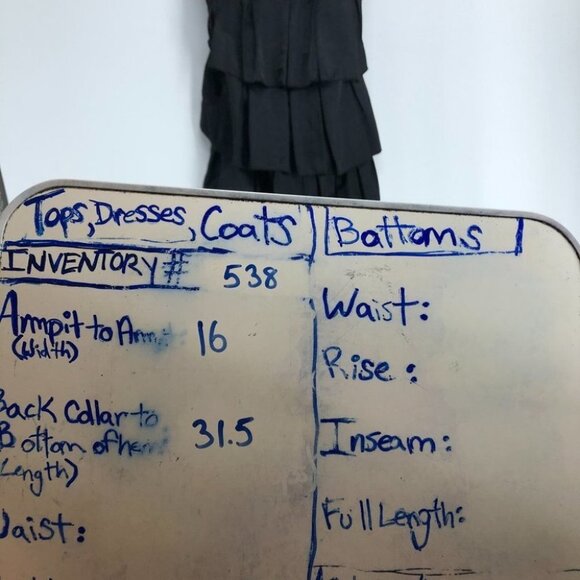 Tops, Dresses, Coats
INVENTORY # 538
Armpit to Arm 16
(Width)
Back Collar to
Bottom of hem 31.5
Length)
Waist:
Bottoms
Waist:
Rise:
Inseam:
Full Length: